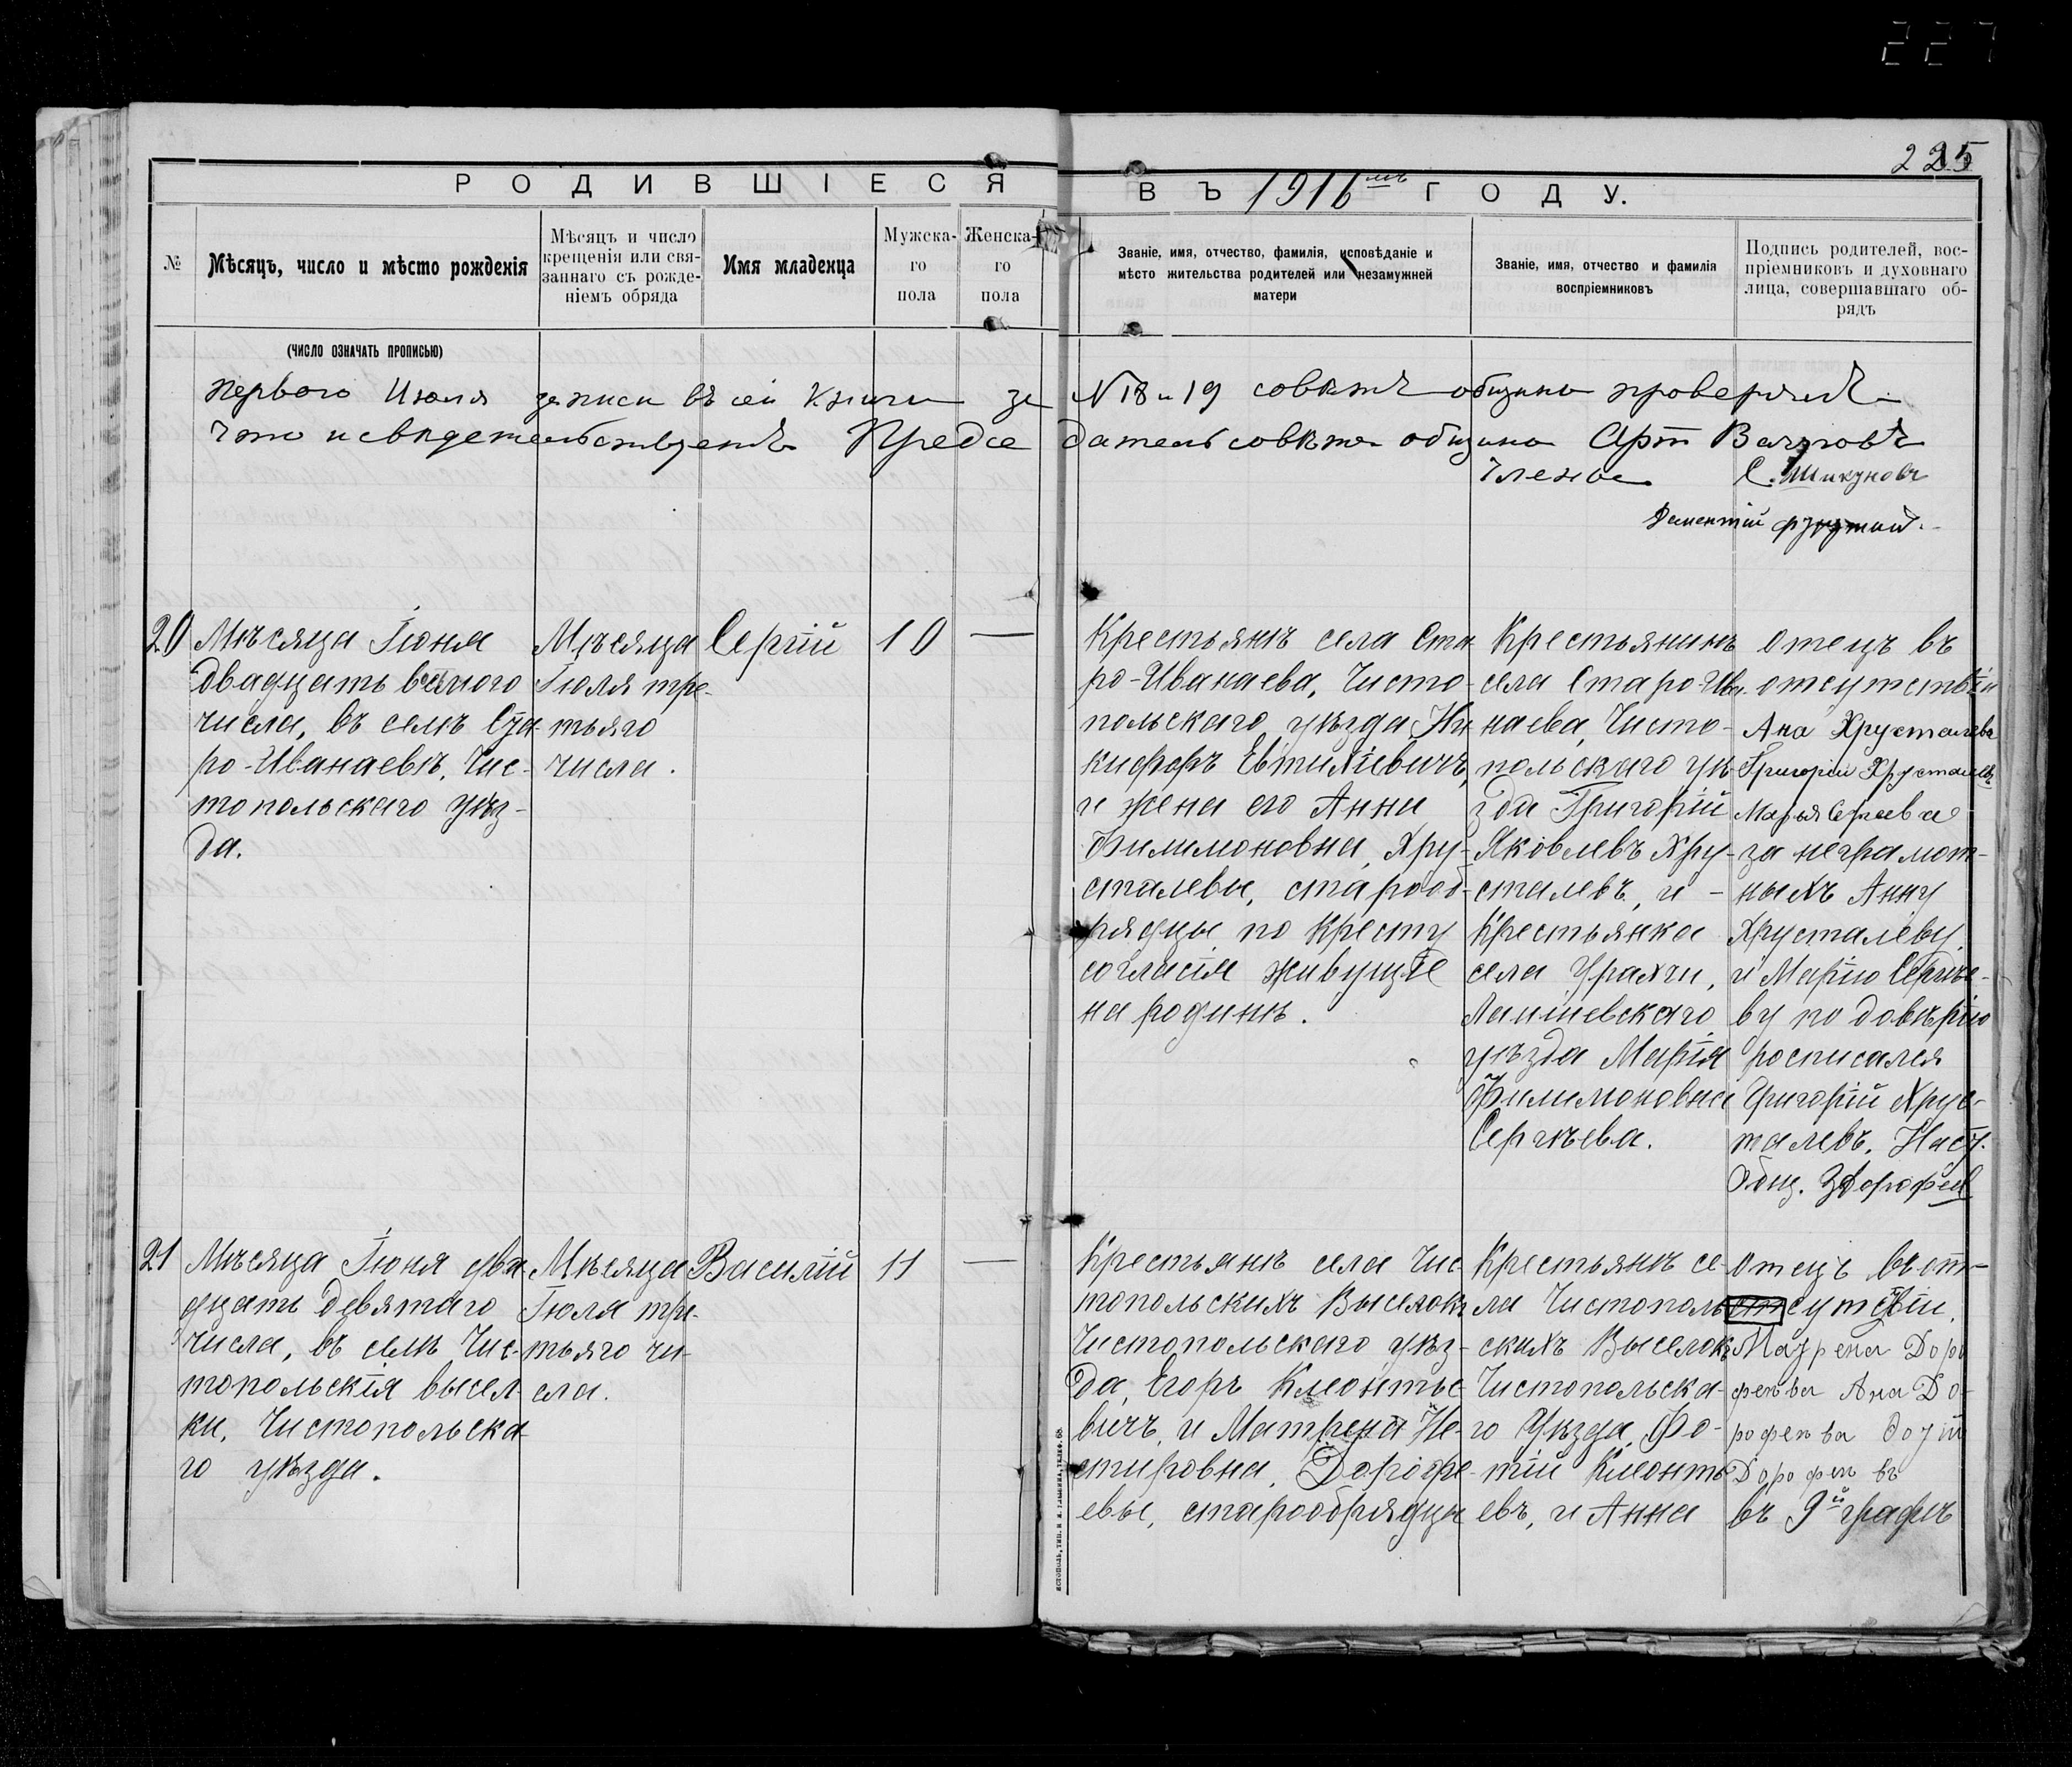 227
225
РОДИВШІЕСЯ ВЪ 1916мъ ГОДУ.
№
Мѣсяцъ, число и мѣсто рожденія
Мѣсяцъ и число
крещенія или свя-
заннаго съ рожде-
ніемъ обряда
Имя младенца
Мужска-
го
пола
Женска-
го
пола
Званіе, имя, отчество, фамилія, исповѣданіе и
мѣсто жительства родителей или незамужней
матери
Званіе, имя, отчество и фамилія
воспріемниковъ
Подпись родителей, вос-
пріемниковъ и духовнаго
лица, совершавшаго об-
рядъ
(ЧИСЛО ОЗНАЧАТЬ ПРОПИСЬЮ)
первого Июля записи въ сей книги за № 18 и 19 совѣтъ общины проверялъ
что и свидетельствуетъ Председатель совѣта общины Арт
члены С. Шикуновъ
Дементій
20
Мѣсяца Іюня
двадцать
числа, въ селѣ Ста-
ро-Иванаевѣ, Чис-
топольскаго уѣз-
да.
Мѣсяца
Іюля тре-
тьяго
числа.
Сергій
10
—
Крестьянъ села Ста
ро-Иванаева, Чисто-
польскаго уѣзда Ни
кифоръ Евтихіевичъ,
и жена его Анна
Филимоновна, Хру-
сталевы, старооб-
рядцы по Кресту
согласія живущіе
на родинѣ.
Крестьянинъ
села Старо-Ива
наева, Чисто-
польскаго уѣ
зда Григорій
Яковлевъ Хру-
сталевъ, и -
Крестьянка
села Урахчи,
Лаишевскаго
уѣзда Марія
Филимоновна
Сергѣева.
Отецъ въ
отсутствіи
Ана Хрусталева
Григорій Хрусталевъ
Марья Сергеева
за неграмот-
ныхъ Анну
Хрусталеву
и Марію Сергѣе-
ву по довѣрію
росписался
Григорій Хрус-
талевъ. Наст.
Общ.
21
Мѣсяца Іюня два
дцать девятаго
числа, въ селѣ Чис-
топольскія высел-
ки, Чистопольска-
го уѣзда.
Мѣсяца
Іюля тре-
тьяго чи-
сла.
Василій
11
—
Крестьянъ села Чис
топольскихъ Выселокъ
Чистопольскаго уѣз-
да, Егоръ Клеонтье-
вичъ, и Матрена Не-
стировна, Дорофе-
евы, старообрядцы
Крестьянъ се-
ла Чистополь
скихъ Выселокъ
Чистопольска-
го Уѣзда, Фо-
тій Клеонть
евъ, и Анна
Отецъ въ от-
сутствіи.
Матрена Доро
феева Ана До-
рофеева
Дорофеевъ
въ 9й графѣ